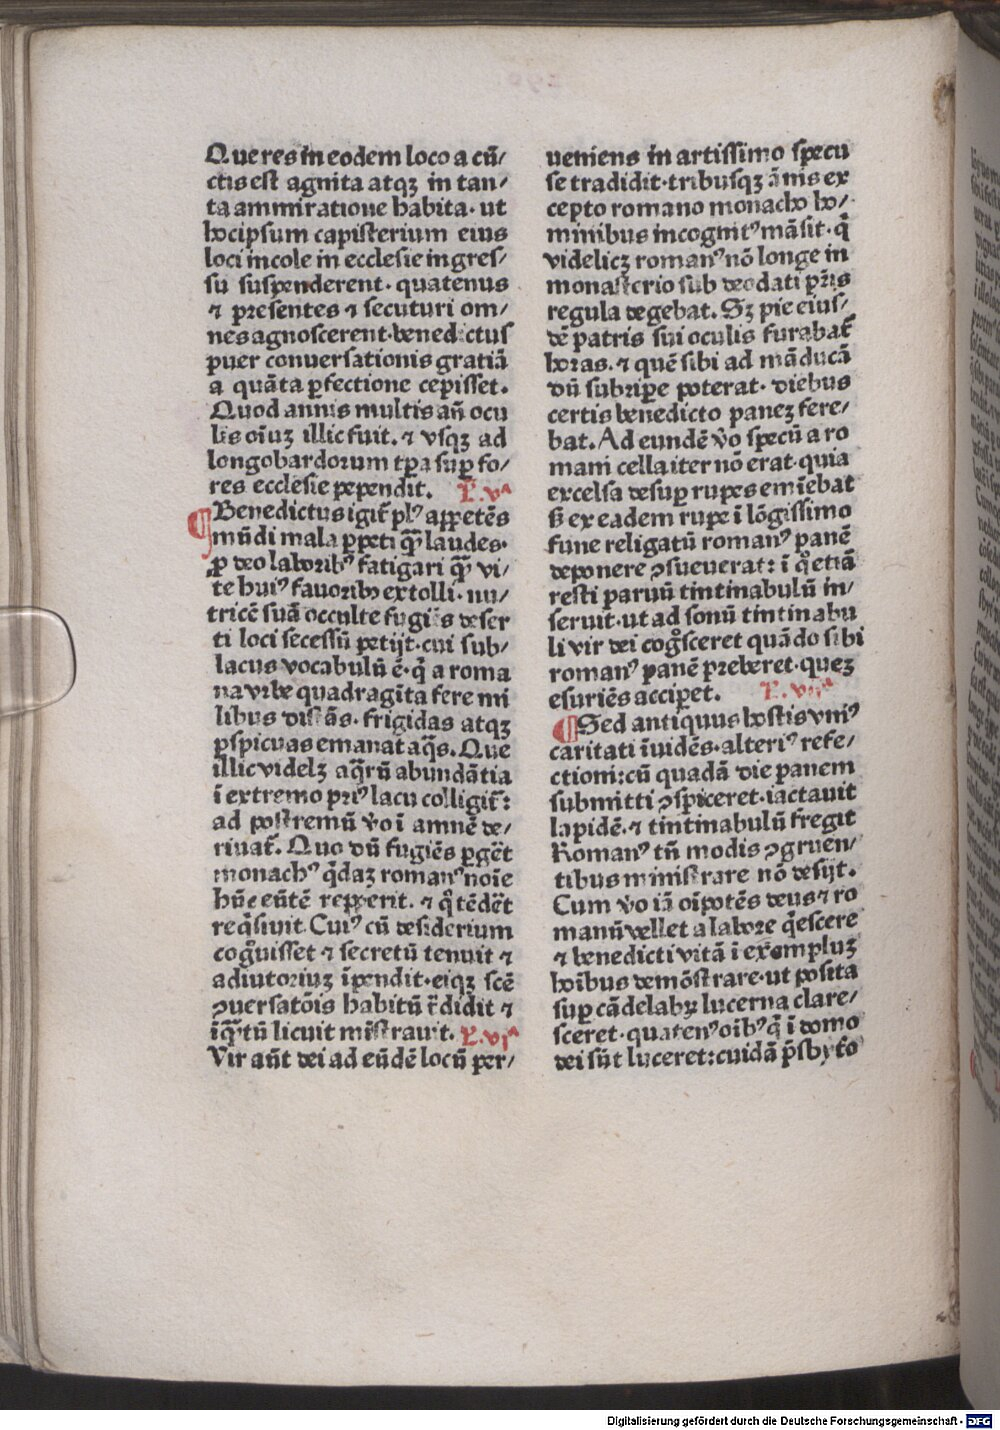 Que res in eodem loco a cū/
ctis est agnita atqꝫ in tan/
ta ammiratione habita· ut
hoc ipsum capisterium eius
loci incole in ecclesie ingres/
su suspenderent· quatenus
⁊ presentes ⁊ secuturi om/
nes agnoscerent· benedictus
puer conuersationis gratiā
a quāta ꝑfectione cepisset.
Quod annis multis añ ocu
lis oīuꝫ illic fuit. ⁊ vsqꝫ ad
longobardorum tꝑa suꝑ fo/
res ecclesie pependit. L̃. vᵃ
Benedictus igit̃ plꝰ appetēs
mūdi mala ꝑpeti qꝫ̄ laudes·
ꝓ deo laboribꝰ fatigari qꝫ̄ vi/
te huiꝰ fauoribꝫ extolli· nu/
tricē suā occulte fugiēs deser
ti loci secessū petijt· cui sub/
lacus vocabulū ē· q̄ a roma
na vrbe quadragīta fere mi
libus distās· frigidas atqꝫ
ꝑspicuas emanat aq̄s. Que
illic videlꝫ aq̄rū abundātia
ī extremo priꝰ lacu colligit̃:
ad postremū ṽo ī amnē de/
riuat̃. Quo dū fugiēs ꝑgēt
monachꝰ q̇daꝫ romanꝰ noīe
hūc eūtē repperit. ⁊ q̊ tēdēt
req̇siuit. Cuiꝰ cū desiderium
cog̊uisset ⁊ secretū tenuit ⁊
adiutoriuꝫ īpendit· eiqꝫ scē
ꝯuersatōis habitū r̃didit ⁊
īqꝫ̄tū licuit mīstrauit. L̃. vjᵃ
Vir aūt dei ad eūdē locū per/
ueniens in artissimo specu
se tradidit· tribusqꝫ ānis ex
cepto romano monacho ho/
minibus incognitꝰ māsit· q̇
videlicꝫ romanꝰ nō longe in
monasterio sub deodati pr̄is
regula degebat. Sꝫ pie eius/
dē patris sui oculis furabat̃
horas. ⁊ quē sibi ad māducā
dū subripe poterat· diebus
certis benedicto paneꝫ fere/
bat. Ad eundē ṽo specū a ro
mani cella iter nō erat· quia
excelsa desuꝑ rupes emīebat
ß ex eadem rupe ī lōgissimo
fune religatū romanꝰ panē
deponere ꝯsueuerat: ī q̊ etiā
resti paruū tintinabulū in/
seruit· ut ad sonū tintinabu
li vir dei cog̊sceret quādo sibi
romanꝰ panē preberet· queꝫ
esuriēs acciꝑet. L̃. vijᵃ
Sed antiquus hostis vniꝰ
caritati īuidēs· alteriꝰ refe/
ctioni: cū quadā die panem
submitti ꝯspiceret· iactauit
lapidē· ⁊ tintinabulū fregit
Romanꝰ tñ modis ꝯgruen/
tibus ministrare nō desijt.
Cum ṽo iā oīpotēs deus ⁊ ro
manū vellet a labore q̇escere
⁊ benedicti vitā ī exempluꝫ
hoībus demōstrare· ut posita
suꝑ cādelabꝝ lucerna clare/
sceret· quatenꝰ oībꝰ q̇ ī domo
dei sūt luceret: cuidā p̄sbyt̃o
Digitalisierung gefördert durch die Deutsche Forschungsgemeinschaft - DFG